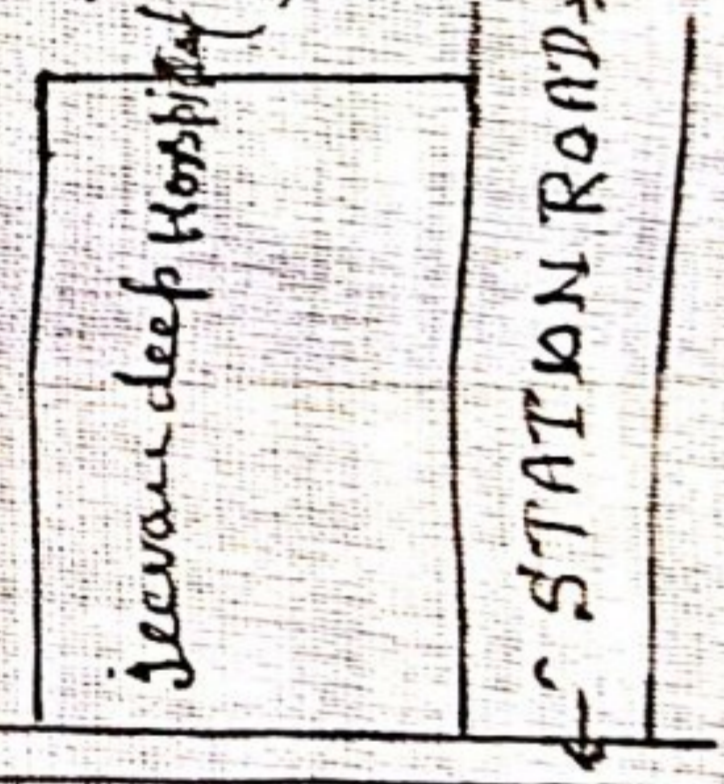 Jeevandeep Hospital
← STATION ROAD →